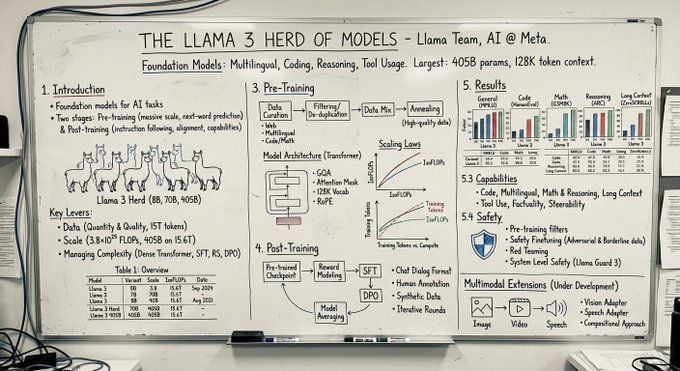 THE LLAMA 3 HERD OF MODELS - Llama Team, AI @ Meta.
Foundation Models: Multilingual, Coding, Reasoning, Tool Usage. Largest: 405B params, 128K token context.
1. Introduction
• Foundation models for AI tasks
• Two stages: Pre-training (massive scale, next-word prediction)
& Post-training (instruction following, alignment, capabilities)
Llama 3 Herd (8B, 70B, 405B)
Key Levers:
• Data (Quantity & Quality, 15T tokens)
• Scale (3.8×10²⁵ FLOPs, 405B on 15.6T)
• Managing Complexity (Dense Transformer, SFT, RS, DPO)
Table 1: Overview
Model Variant Scale Date
Llama 3 8B 3.8 15.6T Sep 2024
Llama 3 70B 15.6T
Llama 3 15.6T Aug 2021
Llama 3 Herd 70B 405B 15.6T
Llama 3 405B 405B 15.6T
3. Pre-Training
Data Curation
Filtering/De-duplication
Data Mix
Annealing
(High-quality data)
• Web
• Multilingual
• Code/Math
Model Architecture (Transformer)
• GQA
• Attention Mask
• 128K Vocab
• RoPE
Scaling Laws
IsoFLOPs
IsoFLOPs
IsoFLOPs
Training Tokens
Training Tokens
IsoFLOPs
Training Tokens vs. Compute
4. Post-Training
Pre-trained Checkpoint
Reward Modeling
SFT
DPO
Model Averaging
• Chat Dialog Format
• Human Annotation
• Synthetic Data
• Iterative Rounds
5. Results
General (MMLU)
Code (HumanEval)
Math (GSM8K)
Reasoning (ARC)
Long Context (ZeroSCROLLS)
Llama 3
Llama 3
Llama 3
Llama 3
Llama 3
5.3 Capabilities
• Code, Multilingual, Math & Reasoning, Long Context
• Tool Use, Factuality, Steerability
5.4 Safety
• Pre-training filters
• Safety Finetuning (Adversarial & Borderline data)
• Red Teaming
• System Level Safety (Llama Guard 3)
Multimodal Extensions (Under Development)
Image
Video
Speech
• Vision Adapter
• Speech Adapter
• Compositional Approach